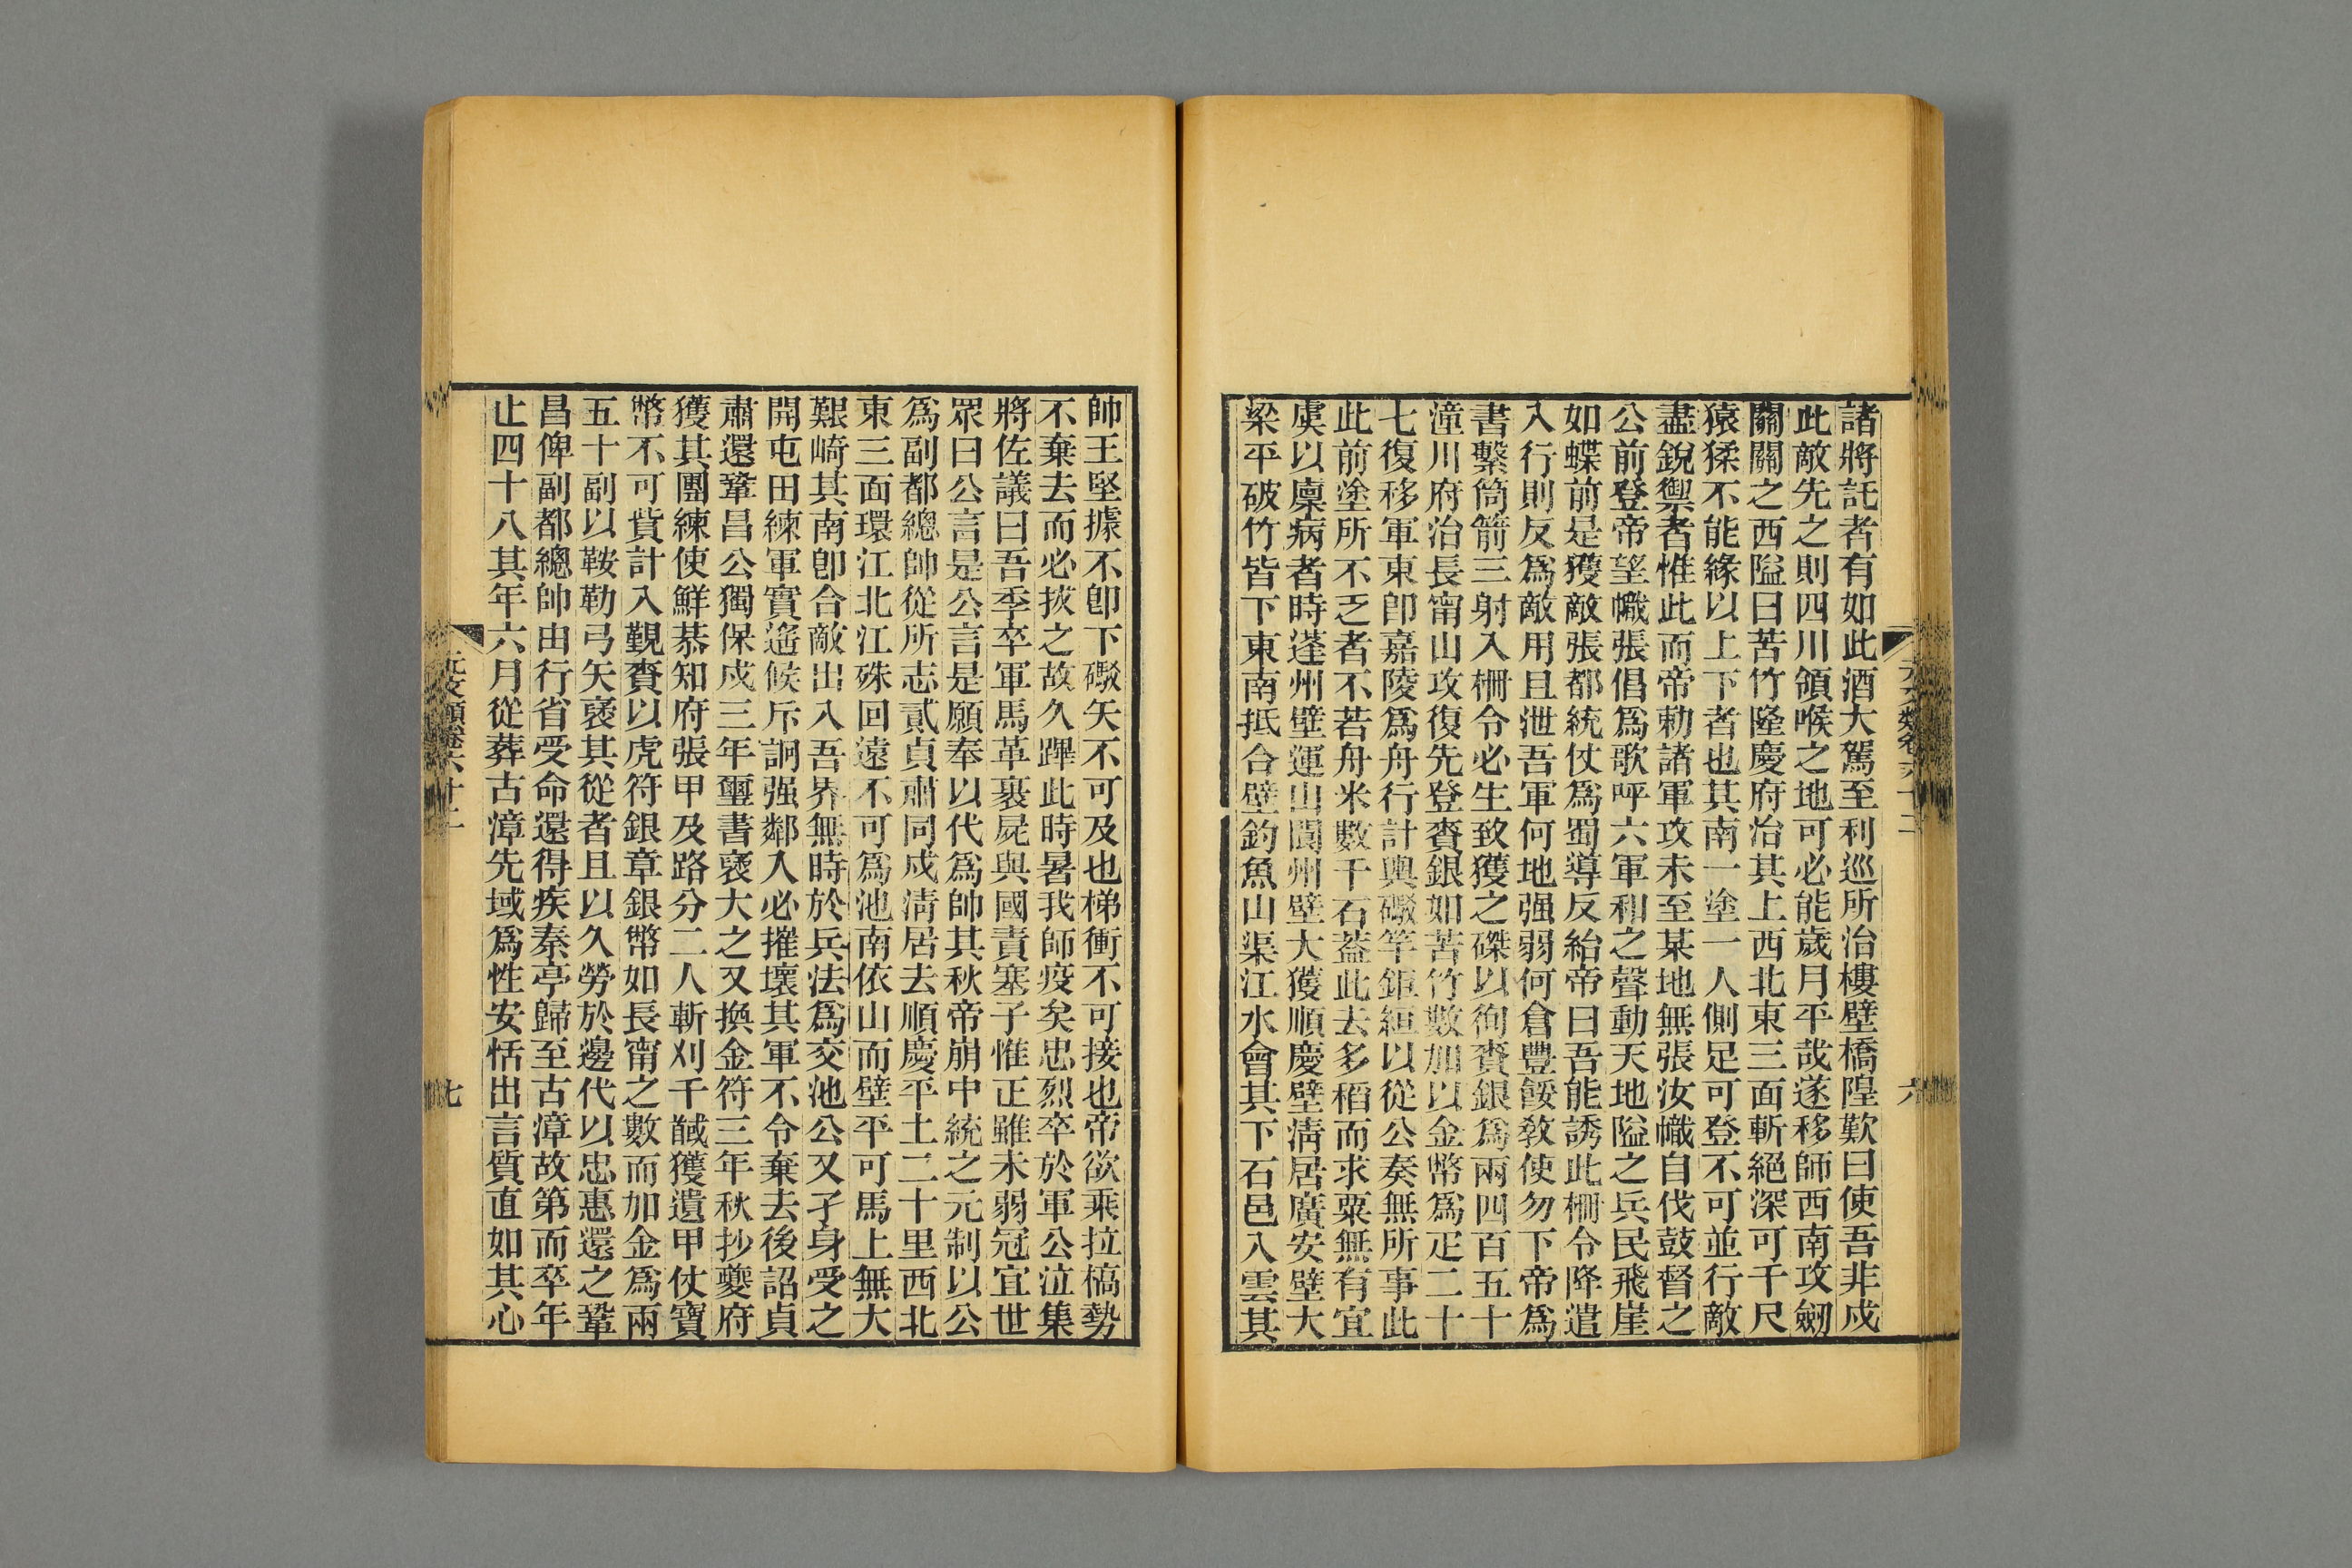 諸將託者有如此酒大駕至利巡所治樓壁橋隍歎曰使吾非戍
此敵先之則四川領喉之地可必能歲月平哉遂移師西南攻劒
關關之西隘曰苦竹隆慶府治其上西北東三面斬絕深可千尺
猿猱不能緣以上下者也其南一塗一人側足可登不可並行敵
盡銳禦者惟此而帝勅諸軍攻未至某地無張汝幟自伐鼓督之
公前登帝望幟張倡爲歌呼六軍和之聲動天地隘之兵民飛崖
如蝶前是獲敵張都統仗爲蜀導反紿帝曰吾能誘此柵令降遣
入行則反爲敵用且泄吾軍何地强弱何倉豐餒敎使勿下帝爲
書繫筒箭三射入柵令必生致獲之磔以徇賚銀爲兩四百五十
潼川府治長甯山攻復先登賚銀如苦竹數加以金幣爲疋二十
七復移軍東卽嘉陵爲舟行計輿礮竿鉅絙以從公奏無所事此
此前塗所不乏者不若舟米數千石葢此去多稻而求粟無有宜
虞以廩病者時蓬州壁運山閬州壁大獲順慶壁淸居廣安壁大
梁平破竹皆下東南抵合壁釣魚山渠江水會其下石邑入雲其
元文類卷六十二
六
帥王堅據不卽下礮矢不可及也梯衝不可接也帝欲乘拉槁勢
不棄去而必拔之故久蹕此時暑我師疫矣忠烈卒於軍公泣集
將佐議曰吾季卒軍馬革裹屍與國責塞子惟正雖未弱冠宜世
眾曰公言是公言是願奉以代爲帥其秋帝崩中統之元制以公
爲副都總帥從所志貳貞肅同戍淸居去順慶平土二十里西北
東三面環江北江硃回遠不可爲池南依山而壁平可馬上無大
艱崎其南卽合敵出入吾界無時於兵法爲交池公又孑身受之
開屯田練軍實遙候斥詗强鄰入必摧壞其軍不令棄去後詔貞
肅還鞏昌公獨保戍三年璽書襃大之又換金符三年秋抄夔府
獲其團練使鮮恭知府張甲及路分二人斬刈千馘獲遺甲仗寶
幣不可貲計入覲賚以虎符銀章銀幣如長甯之數而加金爲兩
五十副以鞍勒弓矢襃其從者且以久勞於邊代以忠惠還之鞏
昌俾副都總帥由行省受命還得疾秦亭歸至古漳故第而卒年
止四十八其年六月從葬古漳先域爲性安恬出言質直如其心
元文類卷六十二
七